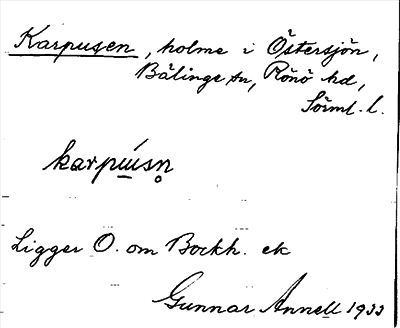 Karpusen, holme i Östersjön,
Bälinge sn, Rönö hd,
Sörml. l.
karpu̲´sn̥
Ligger O. om Bockh. ek
Gunnar Annell 1933